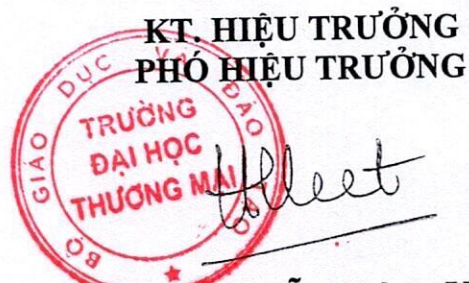 KT. HIỆU TRƯỞNG
PHÓ HIỆU TRƯỞNG
BỘ GIÁO DỤC VÀ ĐÀO TẠO
TRƯỜNG
ĐẠI HỌC
THƯƠNG MẠI